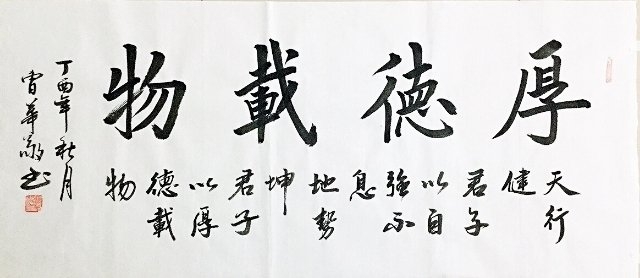 厚德載物
天行
健
君子
以自
強不
息
地勢
坤
君子
以厚
德載
物
丁酉年秋月
華书